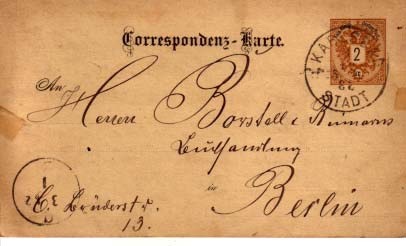 Correspondenz-Karte.
2
KA
STADT
An
Herren Borstell &
Buchhandlung
in
Berlin
C. Brüderstr.
13.